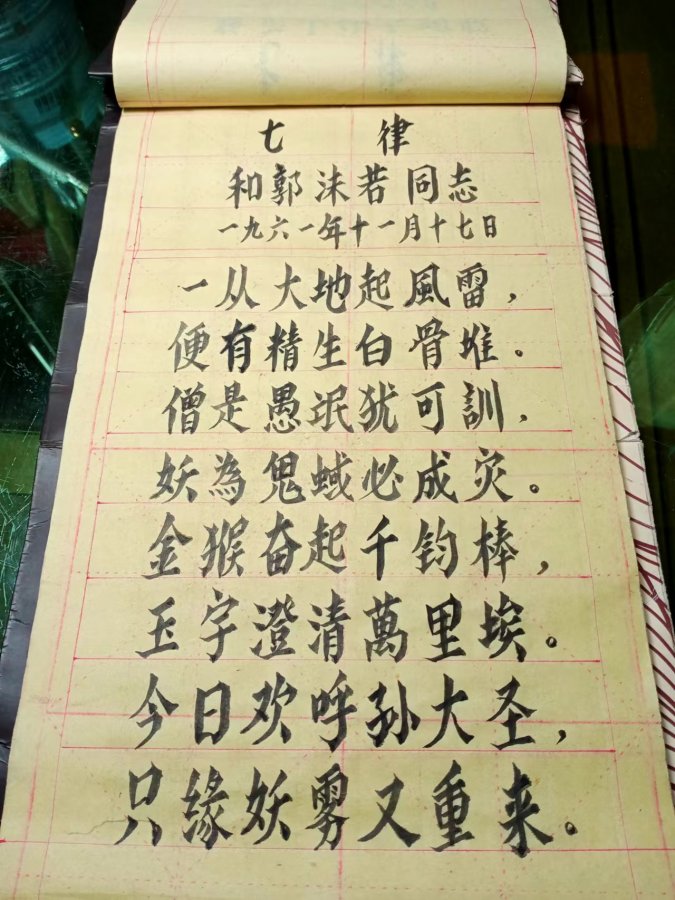 七律
和郭沫若同志
一九六一年十一月十七日
一从大地起風雷，
便有精生白骨堆。
僧是愚氓犹可訓，
妖為鬼蜮必成灾。
金猴奋起千钧棒，
玉宇澄清萬里埃。
今日欢呼孙大圣，
只缘妖雾又重来。